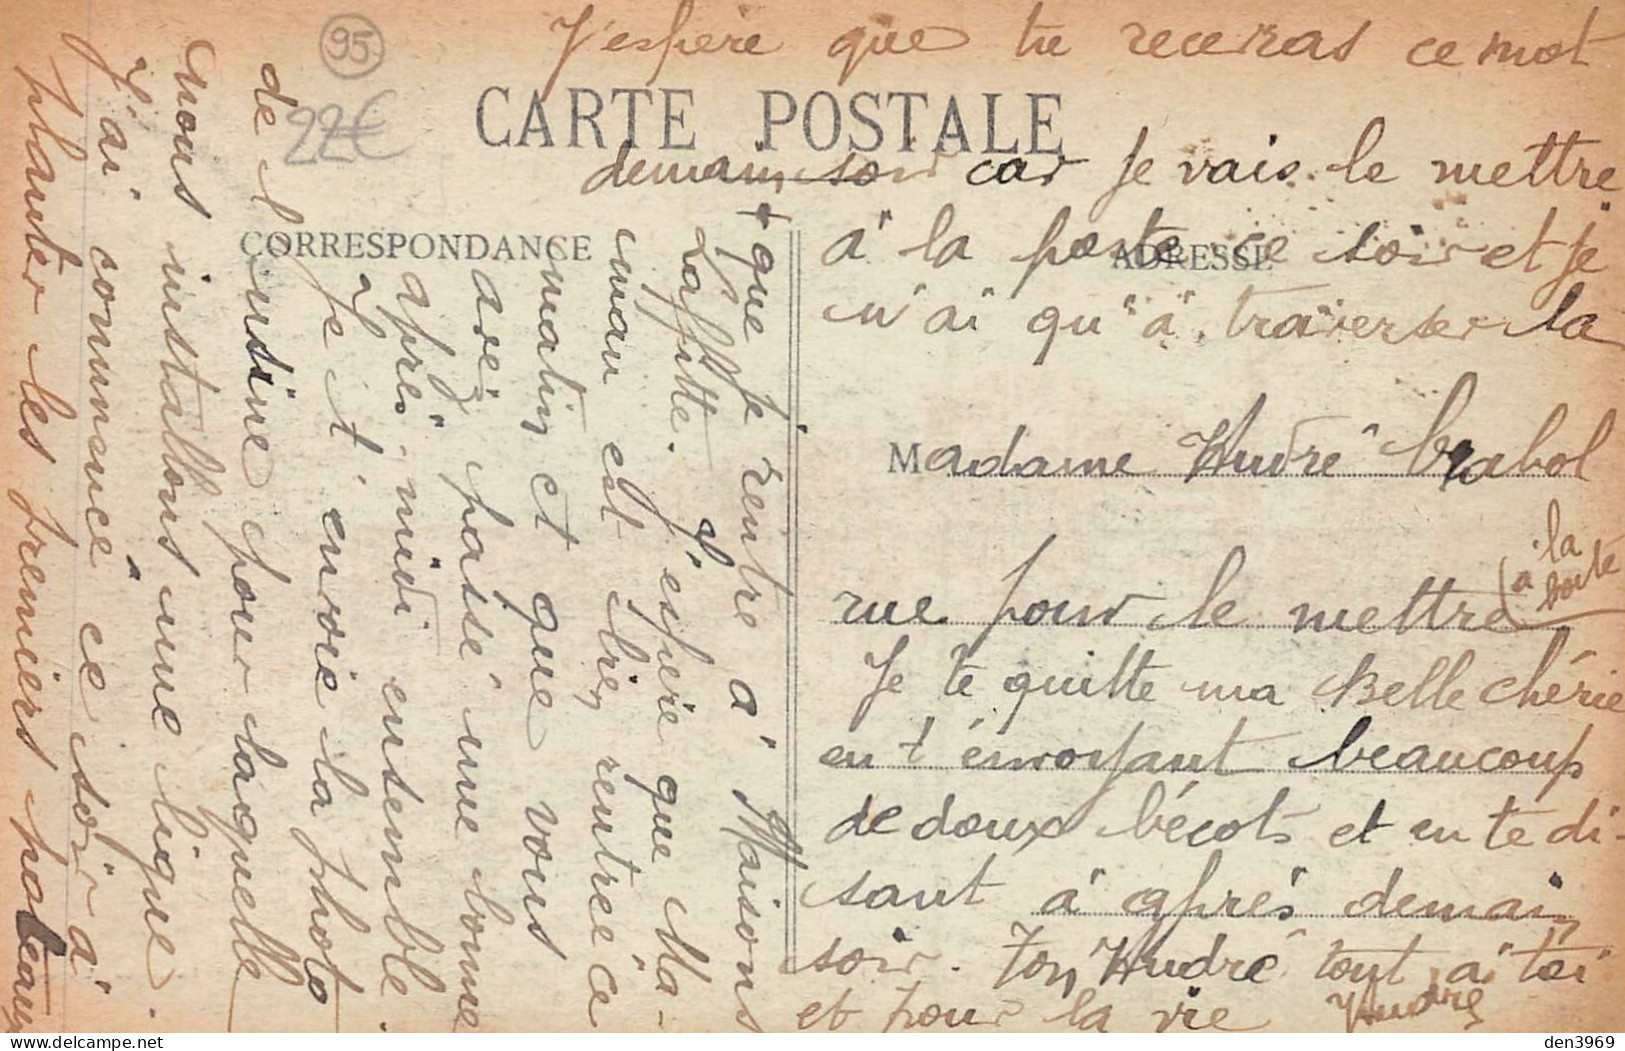 95
22€
CARTE POSTALE
CORRESPONDANCE
ADRESSE
+ que je rentre à Maisons
Laffitte. J'espère que Ma-
man est bien rentrée ce
matin et que vous
avez passé une bonne
après midi ensemble.
Je t'envoie la photo
de l'usine pour laquelle
nous installons une ligne.
J'ai commencé ce soir à
planter les premiers poteaux
J'espère que tu receras ce mot
demain soir car je vais le mettre
à la poste ce soir et je
n'ai qu'à traverser la
Madame André Brabol
rue pour le mettre (à la
boite
Je te quitte ma Belle chérie
en t'envoyant beaucoup
de doux bécots et en te di-
sant à après demain
soir. Ton André tout à toi
et pour la vie André
den3969